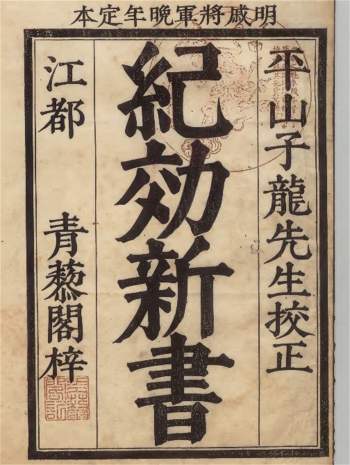 明戚將軍晚年定本
平山子龍先生挍正
紀効新書
江都 青藜閣梓